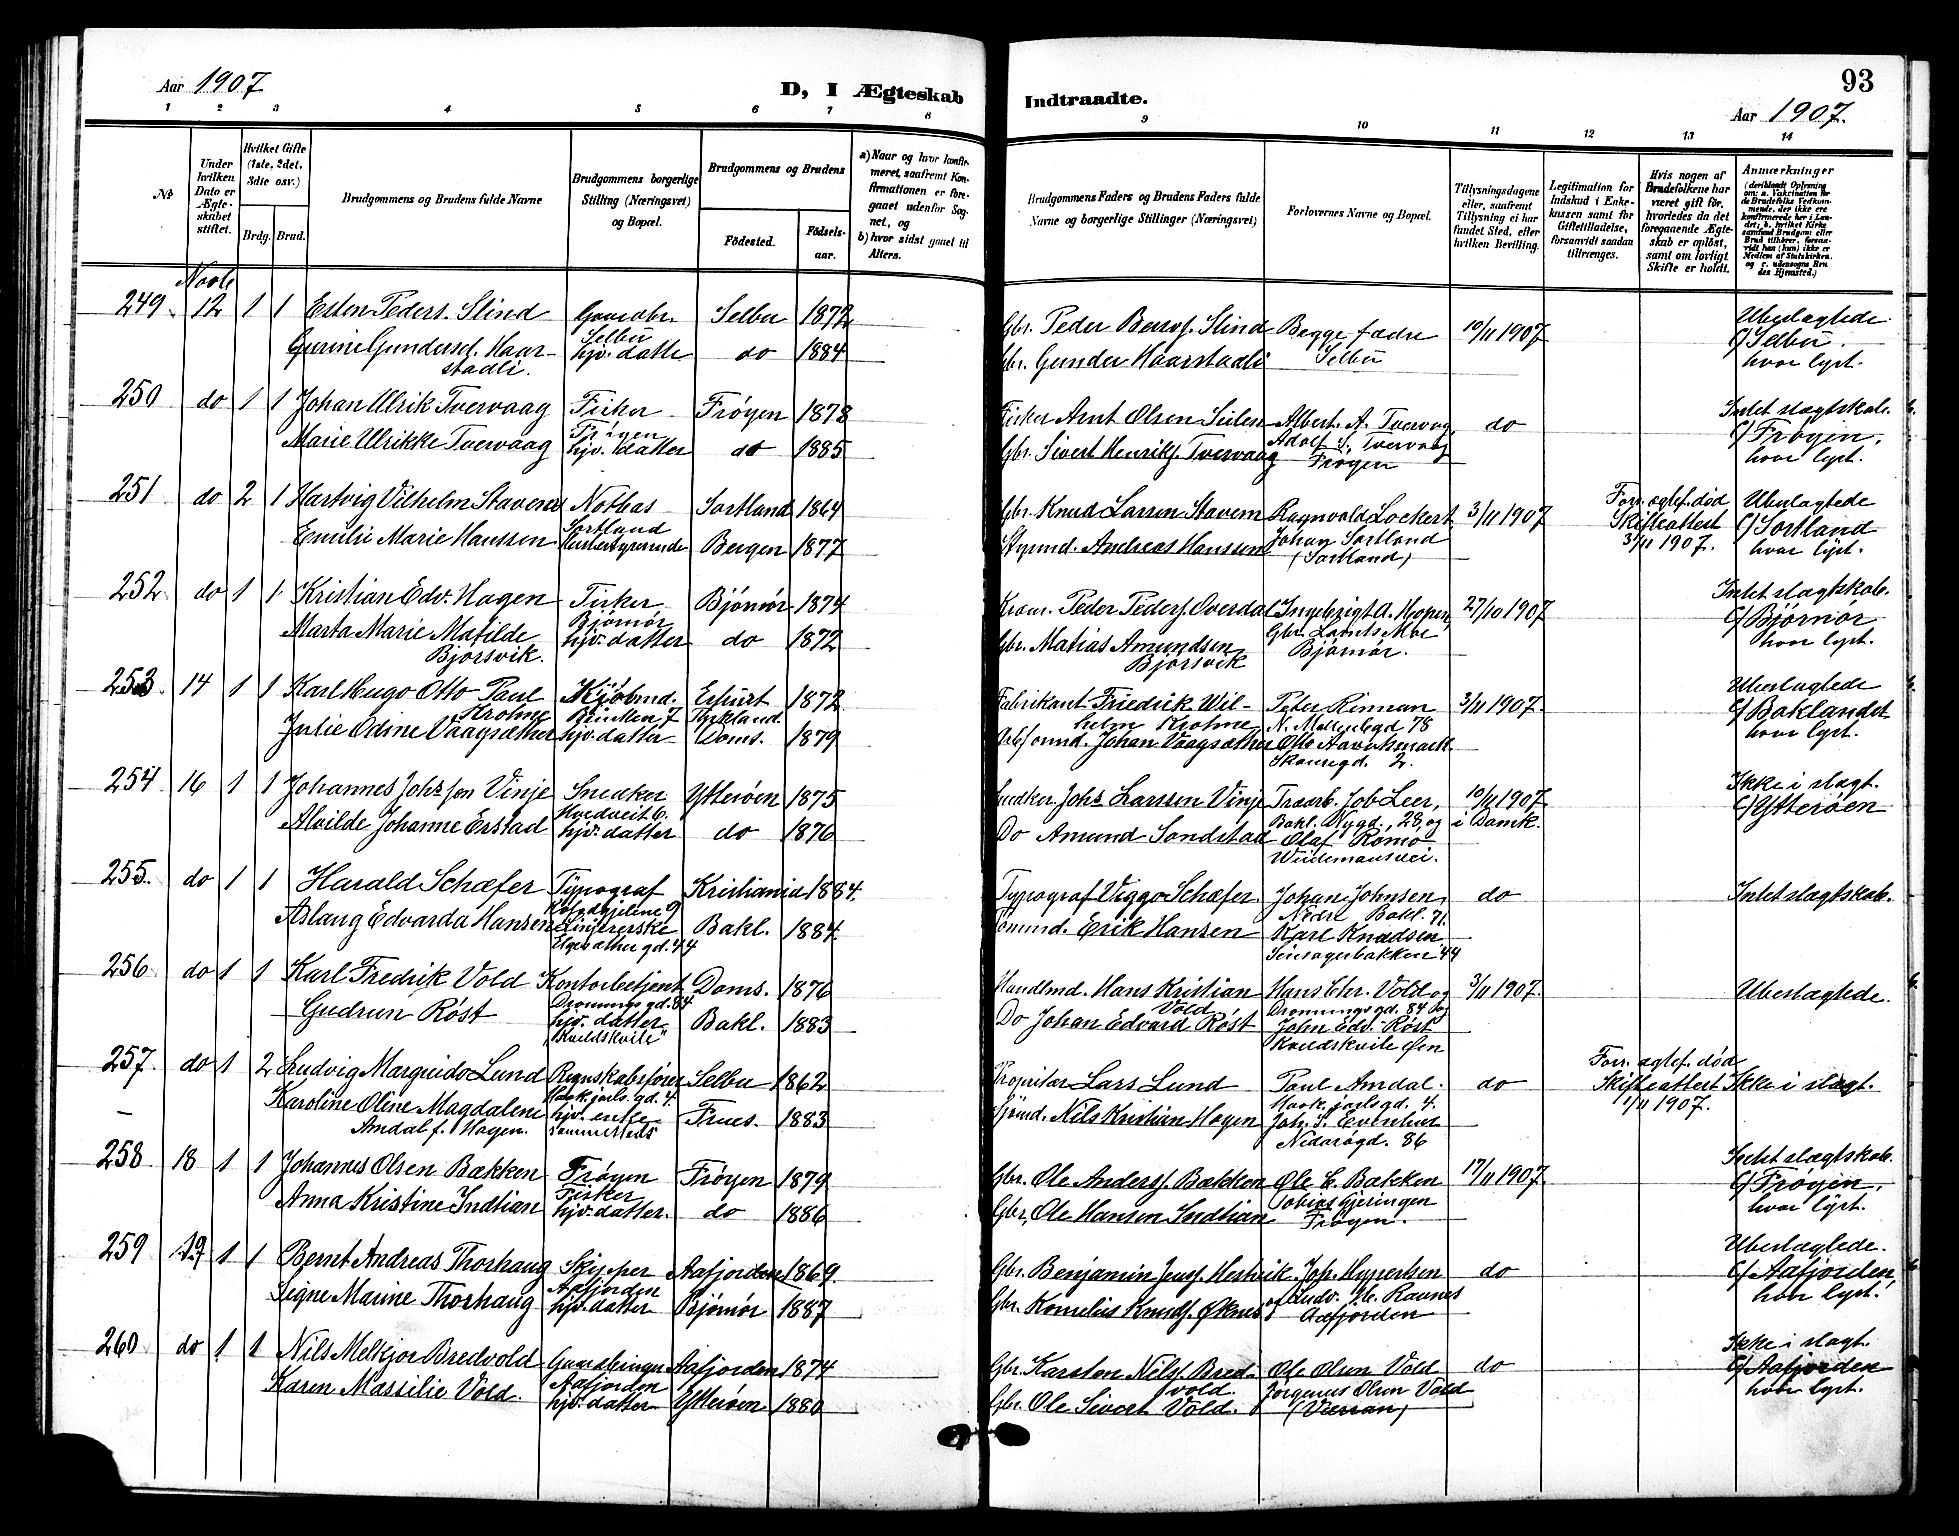 Aar 1907
D, I Ægteskab
1 2 3 4 5 6 7 8
No
Under hvilken Dato er Ægteskabet stiftet.
Hvilket Gifte (1ste, 2det, 3die osv.)
Brdg. Brud.
Brudgommens og Brudens fulde Navne
Brudgommens borgerlige Stilling (Næringsvei) og Bopæl.
Brudgommens og Brudens
Födested. Födsels-aar.
a) Naar og hvor konfirmeret, saafremt Konfirmationen er foregaaet udenfor Sognet, og
b) hvor sidst gaaet til Alters.
249. 12 1 1 Esten Peders. Slind Selbu 1872
Selbu
Gurine Gundersd. Haar- hjv. datter do 1884
stadli.
250 do 1 1 Johan Ulrik Tvervaag Fisker Frøyen 1878
Frøyen
Marie Ulrikke Tvervaag hjv. datter do 1885
251 do 2 1 Hartvig Vilhelm Stavem Notbas Sortland 1864
Sortland
Emilie Marie Hanssen Bergen 1877
252 do 1 1 Kristian Edv. Hagen Fisker Bjørnør 1874
Bjørnør
Marta Marie Matilde hjv. datter do 1872
Bjørsvik.
253 14 1 1 Karl Hugo Otto Paul Kjøbmd. Erfurt 1872
Krohne Brinken 7 Tyskland
Julie Odine Vaagsæther hjv. datter Doms. 1879
254 16 1 1 Johannes Johs.sen Vinje Snedker Ytterøen 1875
Alvilde Johanne Erstad hjv. datter do 1876
255. do 1 1 Harald Schæfer Typograf Kristiania 1884.
Aslaug Edvarda Hansen Bakl. 1884.
Elgesæther gd. 44
256 do 1 1 Karl Fredrik Vold Kontorbetjent Doms. 1876
Dronnings gd. 84
Gudrun Røst hjv. datter Bakl. 1883
"Kveldskvile"
257. do 1 2 Ludvig Margvido Lund Regnskabsfører Selbu 1862
Haakjarls. gd. 4.
Karoline Oline Magdalene hjv. enke Frues. 1883
Amdal f. Hagen. sammesteds
258 18 1 1 Johannes Olsen Bækken Frøyen Frøyen 1879
Fisker
Anna Kristine Indtian hjv. datter. do 1886
259 19 1 1 Bernt Andreas Thorhaug Skipper Aafjorden 1869.
Aafjorden
Signe Marine Thorhaug hjv. datter Bjørnør 1887
260 do 1 1 Nils Melkjor Bredvold Aafjorden 1874
Aafjorden
Karen Massilie Vold. hjv. datter Ytterøen 1880
93
Indtraadte.
Aar 1907.
9 10 11 12 13 14
Brudgommens Faders og Brudens Faders fulde Navne og borgerlige Stillinger (Næringsvei)
Forlovernes Navne og Bopæl.
Tillysningsdagene eller, saafremt Tillysning ei har fundet Sted, efter hvilken Bevilling.
Legitimation for Indskud i Enkekassen samt for Giftetilladelse, forsaavidt saadan tiltrænges.
Hvis nogen af Brudefolkene har været gift før, hvorledes da det foregaaende Ægteskab er opløst, samt om lovligt Skifte er holdt.
Anmærkninger
(deriblandt Oplysning om: a. Vaccination for de Brudefolks Vedkommende, der ikke ere konfirmerede her i Landet; b. hvilket Kirkesamfund Brudgom eller Brud tilhører, forsaavidt han (hun) ikke er Medlem af Statskirken, og c. udensogns Brudes Hjemsted.)
Gbr. Peder Slind Begge fædre 10/11 1907 Ubeslægtede
Gbr. Gunder Haarstadli Selbu c/ Selbu.
hvor lyst.
Fisker Arnt Olsen Albert. A. Tvervag, do Intet slægtskab.
Gbr. Sivert Henriks. Tvervaag Adolf S. Tvervaag c/ Frøyen,
Frøyen hvor lyst.
Gbr. Knud Larsen Stavem Ragnvald Lockert 3/11 1907 Forr. ægtef. død Ubeslægtede
Styrmd. Andreas Hanssen Johan Sortland Skifteattest c/ Sortland
(Sortland) 3/11 1907. hvor lyst.
Peder Peders. Overdal Ingebrigt A. Mopen, 27/10 1907 Intet slægtskab.
Gbr. Matias Amundsen Moe c/ Bjørnør
Bjørsvik Bjørnør. hvor lyst.
Fabrikant Friedrik Wil- Peter Rinnan 3/11 1907. Ubeslægtede
helm Krohne 78 c/ Baklandet
Johan Vaagsæther Otto hvor lyst.
2.
Snedker Johs Larssen Vinje Job Leer, 10/11 1907 Ikke i slægt.
Bakl. Nygd. 28, og i Domk. c/ Ytterøen
Do Amund Sandstad Olaf Romo
Typograf Viggo Schæfer. Johan Johnsen, do Intet slægtskab.
Nedre Bakl. 71.
Erik Hansen Karl Knudsen
44
Handlmd. Hans Kristian Hans Chr. Vold og 3/11 1907. Ubeslægtede.
Vold Dronnings gd. 84 og
Do Johan Edvard Røst John Edv. Røst
Kveldskvile
Proprietær Lars Lund Paul Amdal. do Forr. ægtef. død
Haak. jarlsgd. 4. Skifteattest Ikke i slægt.
Nils Kristian Hagen Joh. S. 1/11 1907.
86
Gbr. Ole Anderss. Bækken Ole E. Bækken 17/11 1907 Intet slægtskab.
Tobias c/ Frøyen,
Gbr. Ole Hansen Indtian Frøyen. hvor lyst.
Gbr. Benjamin Hestvik do Ubeslægtede.
c/ Aafjorden,
Gbr. Kornelius Knuds. Øknes Aafjorden hvor lyst.
Gbr. Karsten Nils. Bred- Ole Olsen Vold do Ikke i slægt.
vold. Jørgenus Olsen Vold c/ Aafjorden
Gbr. Ole Sivert Vold. hvor lyst.